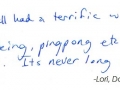 ll had a terrific w
eing, pingpong etc
. Its never long
-Lori, Do